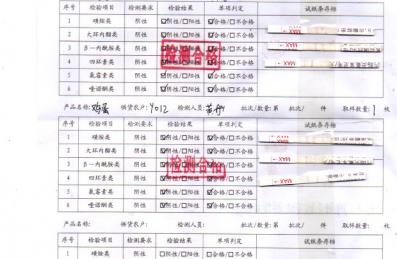 序号 检验项目 检测要求 检验结果 单项判定 试纸条存档
1 磺胺类 阴性 ☑阴性/□阳性 ☑合格/□不合格
2 大环内酯类 阴性 ☑阴性/□阳性 ☑合格/□不合格
3 β-内酰胺类 阴性 ☑阴性/□阳性 ☑合格/□不合格
4 四环素类 阴性 ☑阴性/□阳性 ☑合格/□不合格
5 氯霉素类 阴性 ☑阴性/□阳性 ☑合格/□不合格
6 喹诺酮类 阴性 ☑阴性/□阳性 ☑合格/□不合格
检测合格
MAX
MAX
MAX
产品名称: 鸡蛋 供货农户: 4012 检测人员: 批次/数量:第 批次/ 件 取样数量: 1 枚
序号 检验项目 检测要求 检验结果 单项判定 试纸条存档
1 磺胺类 阴性 ☑阴性/□阳性 ☑合格/□不合格
2 大环内酯类 阴性 ☑阴性/□阳性 ☑合格/□不合格
3 β-内酰胺类 阴性 ☑阴性/□阳性 ☑合格/□不合格
4 四环素类 阴性 ☑阴性/□阳性 ☑合格/□不合格
5 氯霉素类 阴性 ☑阴性/□阳性 ☑合格/□不合格
6 喹诺酮类 阴性 ☑阴性/□阳性 ☑合格/□不合格
检测合格
MAX
MAX
MAX
产品名称: 供货农户: 检测人员: 批次/数量:第 批次/ 件 取样数量: 枚
序号 检验项目 检测要求 检验结果 单项判定 试纸条存档
1 磺胺类 阴性 □阴性/□阳性 □合格/□不合格